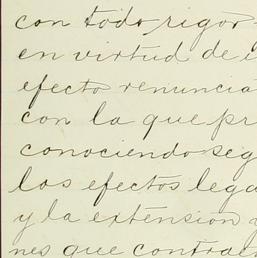 con todo rigor
en virtud de
efecto renuncia
con la que pr
conociendo seg
los efectos lega
y la extension
nes que contrat